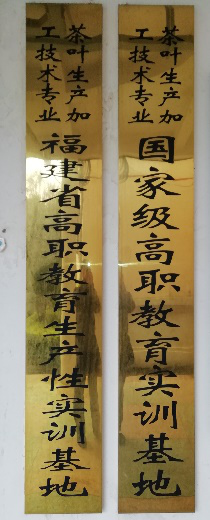 茶叶生产加
工技术专业
国家级高职教育实训基地
茶叶生产加
工技术专业
福建省高职教育生产性实训基地